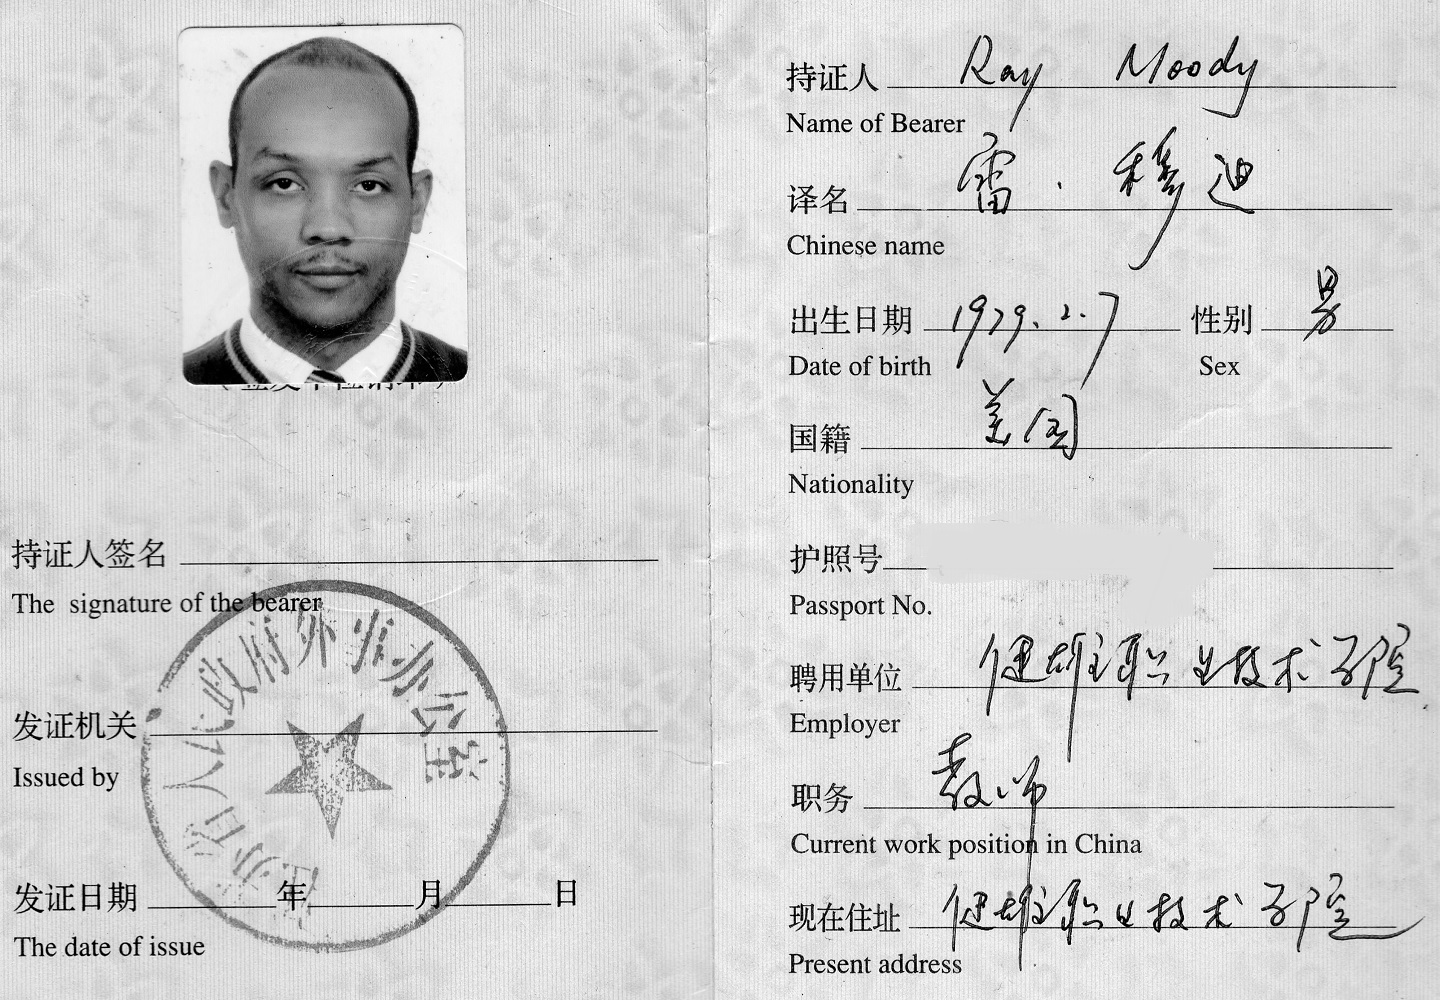 持证人签名
The signature of the bearer
发证机关
Issued by
江苏省人民政府外事办公室
发证日期 年 月 日
The date of issue
持证人 Ray Moody
Name of Bearer
译名 雷·穆迪
Chinese name
出生日期 1979.2.7 性别 男
Date of birth Sex
国籍 美国
Nationality
护照号
Passport No.
聘用单位 健雄职业技术学院
Employer
职务 教师
Current work position in China
现在住址 健雄职业技术学院
Present address